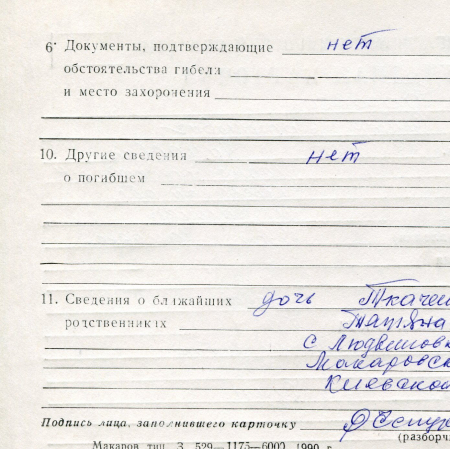 6. Документы, подтверждающие нет
обстоятельства гибели
и место захоронения
10. Другие сведения нет
о погибшем
11. Сведения о ближайших дочь Ткачен
родственниках Татьяна
с Людвиновк
Макаровск
Киевской
Подпись лица, заполнившего карточку
(разборч
Макаров тип. З. 529—1175—6000 1990 г.